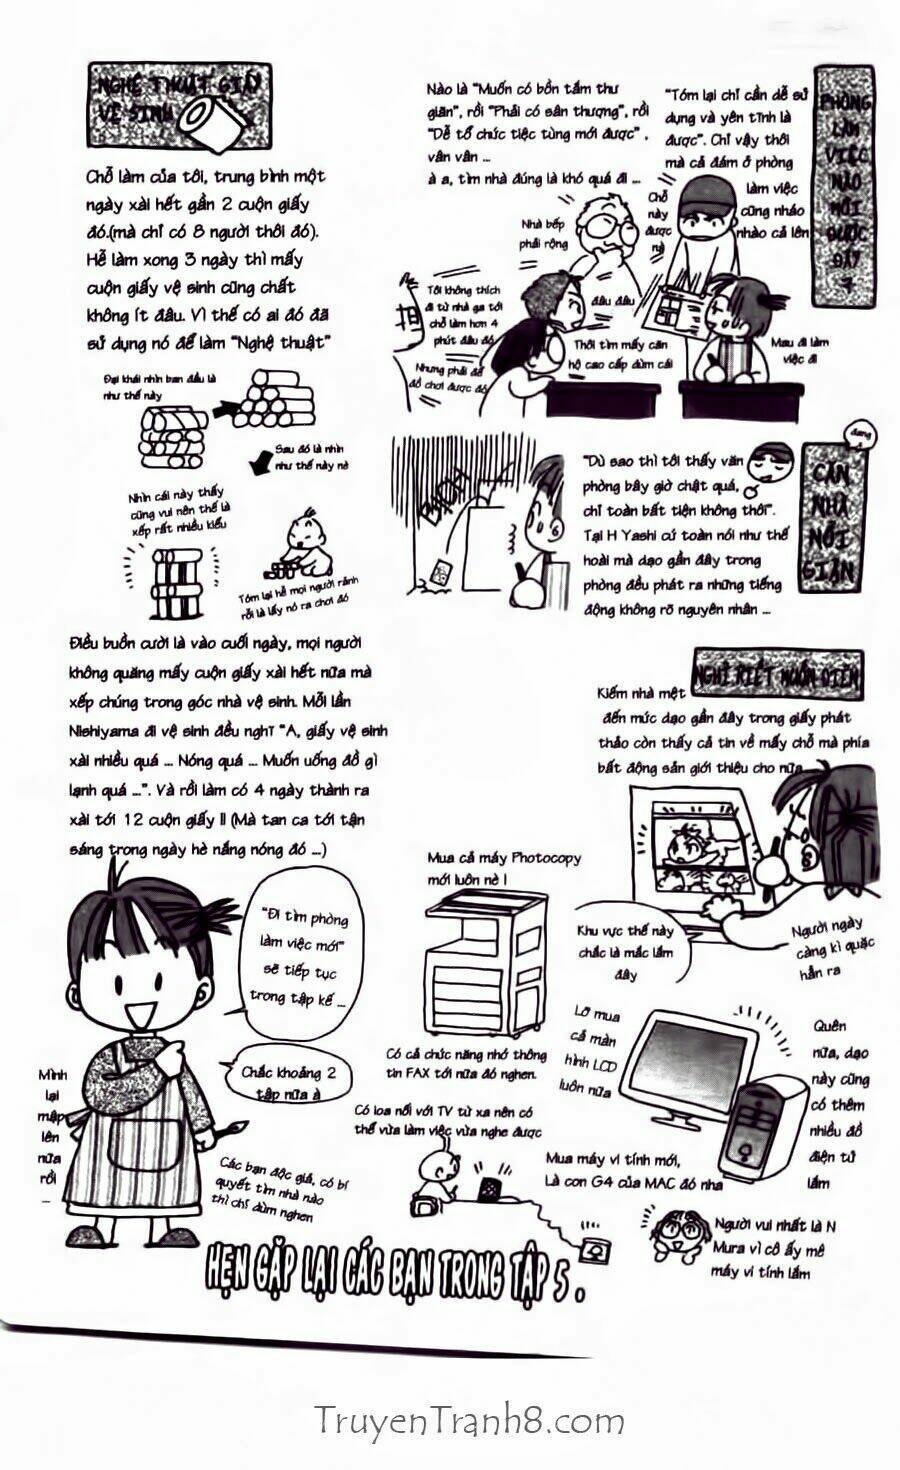 PHÒNG
LÀM
VIỆC
NÀO
MỚI
ĐƯỢC
ĐÂY
?
"Tóm lại chỉ cần dễ sử
dụng và yên tĩnh là
được". Chỉ vậy thôi
mà cả đám ở phòng
làm việc
cũng nháo
nhào cả lên
Nào là "Muốn có bồn tắm thư
giãn", rồi "Phải có sân thượng", rồi
"Dễ tổ chức tiệc tùng mới được",
vân vân ...
à a, tìm nhà đúng là khó quá đi ...
Chỗ
này
được
nè
Nhà bếp
phải rộng
Tôi không thích
đi từ nhà ga tới
chỗ làm hơn 4
phút đâu đó
đâu đâu
Thôi tìm mấy căn
hộ cao cấp dùm cái
Mau đi làm
việc đi
Nhưng phải để
đồ chơi được đó
đang
CĂN
NHÀ
NỔI
GIẬN
"Dù sao thì tôi thấy văn
phòng bây giờ chật quá,
chỉ toàn bất tiện không thôi".
Tại H Yashi cứ toàn nói như thế
hoài mà dạo gần đây trong
phòng đều phát ra những tiếng
động không rõ nguyên nhân ...
NGHĨ RIẾT MUỐN ĐIÊN
Kiếm nhà mệt
đến mức dạo gần đây trong giấy phát
thảo còn thấy cả tin về mấy chỗ mà phía
bất động sản giới thiệu cho nữa
Khu vực thế này
chắc là mắc lắm
đây
Người ngày
càng kì quặc
hẳn ra
NGHỆ THUẬT GIẤY
VỆ SINH
Chỗ làm của tôi, trung bình một
ngày xài hết gần 2 cuộn giấy
đó.(mà chỉ có 8 người thôi đó).
Hễ làm xong 3 ngày thì mấy
cuộn giấy vệ sinh cũng chất
không ít đâu. Vì thế có ai đó đã
sử dụng nó để làm "Nghệ thuật"
Đại khái nhìn ban đầu là
như thế này
Sau đó là nhìn
như thế này nè
Nhìn cái này thấy
cũng vui nên thế là
xếp rất nhiều kiểu
Tóm lại hễ mọi người rảnh
rỗi là lấy nó ra chơi đó
Điều buồn cười là vào cuối ngày, mọi người
không quăng mấy cuộn giấy xài hết nữa mà
xếp chúng trong góc nhà vệ sinh. Mỗi lần
Nishiyama đi vệ sinh đều nghĩ "A, giấy vệ sinh
xài nhiều quá ... Nóng quá ... Muốn uống đồ gì
lạnh quá ...". Và rồi làm có 4 ngày thành ra
xài tới 12 cuộn giấy !! (Mà tan ca tới tận
sáng trong ngày hè nắng nóng đó ...)
Mua cả máy Photocopy
mới luôn nè !
Có cả chức năng nhớ thông
tin FAX tới nữa đó nghen.
Lỡ mua
cả màn
hình LCD
luôn nữa
Quên
nữa, dạo
này cũng
có thêm
nhiều đồ
điện tử
lắm
Có loa nối với TV từ xa nên có
thể vừa làm việc vừa nghe được
Mua máy vi tính mới,
Là con G4 của MAC đó nha
Người vui nhất là N
Mura vì cô ấy mê
máy vi tính lắm
"Đi tìm phòng
làm việc mới"
sẽ tiếp tục
trong tập kế ...
Chắc khoảng 2
tập nữa à
Mình
lại
mập
lên
nữa
rồi
...
Các bạn độc giả, có bí
quyết tìm nhà nào
thì chỉ dùm nghen
HẸN GẶP LẠI CÁC BẠN TRONG TẬP 5.
TruyenTranh8.com